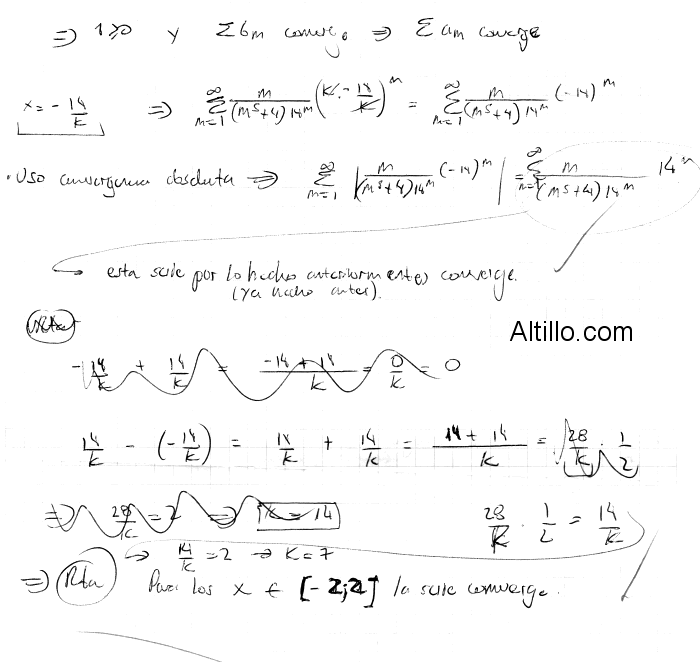 ⇒ 1>0 y Σ bn converge ⇒ Σ an converge
x = -14/k ⇒ ∞ Σ n=1 n/((n^5+4)14^n) (k·-14/k)^n = ∞ Σ n=1 n/((n^5+4)14^n) (-14)^n
· Uso convergencia absoluta ⇒ ∞ Σ n=1 |n/((n^5+4)14^n) (-14)^n| = ∞ Σ n=1 n/((n^5+4)14^n) 14^n
→ esta serie por lo hecho anteriormente, converge.
(ya hecho antes).
Altillo.com
-14/k + 14/k = (-14+14)/k = 0/k = 0
14/k - (-14/k) = 14/k + 14/k = (14+14)/k = 28/k · 1/2
⇒ 28/k = 2 ⇒ k = 14
28/k · 1/2 = 14/k
→ 14/k = 2 → k = 7
⇒ Rta Para los x ∈ [-2;2] la serie converge.